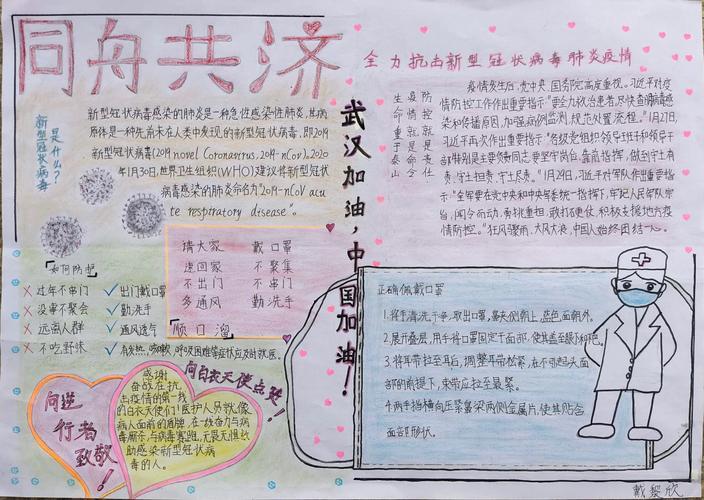 同舟共济
全力抗击新型冠状病毒肺炎疫情
是什么?
新型冠状病毒
新型冠状病毒感染的肺炎是一种急性感染性肺炎,其病
原体是一种先前未在人类中发现的新型冠状病毒,即2019
新型冠状病毒(2019 novel Coronavirus, 2019-nCov)。2020
年1月30日,世界卫生组织(WHO)建议将新型冠状
病毒感染的肺炎命名为"2019-nCV acu
te respiratory disease"。
武汉加油,中国加油!
防控就是责任
疫情就是命令
生命重于泰山
疫情发生后,党中央、国务院高度重视。习近平对疫
情防控工作作出重要指示"要全力救治患者,尽快查清病毒感
染和传播原因,加强病例监测,规范处置流程。"1月27日,
习近平再次作出重要指示:"各级党组织领导班子和领导干
部特别是主要负责同志要坚守岗位、靠前指挥,做到守土有
责、守土担责、守土尽责。"1月29日,习近平对军队作出重要指
示:"全军要在党中央和中央军委统一指挥下,牢记人民军队宗
旨,闻令而动,勇挑重担,敢打硬仗,积极支援地方疫
情防控。"狂风骤雨,大风大浪,中国人始终团结一心。
请大家 戴口罩
速回家 不聚集
不出门 不串门
多通风 勤洗手
顺口溜
「如何防护」
×过年不串门 ✓出门戴口罩
×没事不聚会 ✓勤洗手
×远离人群 ✓通风透气
×不吃野味 ✓有发热,咳嗽,呼吸困难等症状应及时就医。
向逆
行者
致敬!
向白衣天使点赞!
感谢
奋战在抗
击疫情的第一线
的白衣天使们!医护人员就像
病人面前的盾牌,在一线奋力与病
毒厮杀,与病毒赛跑,无畏无惧地
助感染新型冠状病
毒的人。
正确佩戴口罩
1.将手清洗干净,取出口罩,鼻夹侧朝上,蓝色面朝外。
2.展开叠层,用手将口罩固定于面部,使其盖至眼下和下巴。
3.将耳带拉至耳后,调整耳带松紧,在不引起头面
部的前提下,束带应拉至最紧。
4.两手指横向压紧鼻梁两侧金属片,使其贴合
面部形状。
戴黎欣